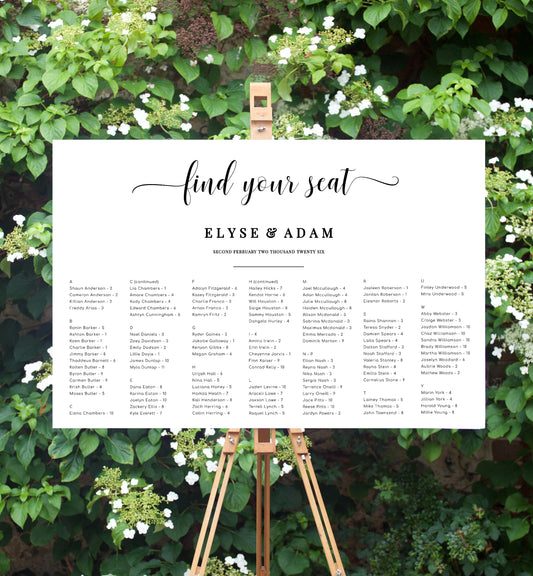 find your seat
ELYSE & ADAM
SECOND FEBRUARY TWO THOUSAND TWENTY SIX
A
Shaun Anderson - 2
Cameron Anderson - 2
Killian Anderson - 3
Freddy Arias - 3
B
Ronin Barker - 5
Barker - 5
Keen Barker - 1
Charlie Barker - 1
Jimmy Barker - 8
Thaddeus Barnett - 6
Kolten Butler - 3
Byron Butler - 3
Carmen Butler - 9
Kriah Butler - 4
Moses Butler - 5
C
Elena Chambers - 10
C (continued)
Lia Chambers - 1
Amare Chambers - 4
Kody Chambers - 2
Edward Chambers - 4
Ashlyn Cunningham - 6
D
Noel Daniels - 2
Zoey Davidson - 3
Emily Dodson - 2
Lillie Doyle - 1
James Dunlap - 4
Myla Dunlap - 11
E
Dana Eaton - 8
Karina Eaton - 10
Jaelyn Eaton - 10
Zackery Ellis - 8
Kyle Everett - 7
F
Adrian Fitzgerald - 6
Kasey Fitzgerald - 3
Charlie Franco - 3
Simon Franco - 6
Anton Franco - 5
Kamryn Fritz - 2
G
Robin Gaines - 3
Jukobie Galloway - 1
Kenyon Gibbs - 8
Megan Graham - 4
H
Uriyah Hall - 6
Nina Hall - 5
Luciana Haney - 5
Thomas Heath - 7
Kali Henderson - 8
Zach Herring - 9
Colin Herring - 4
H (continued)
Hailey Hicks - 7
Kendal Horne - 6
Wm Houston - 8
Paige Houston - 5
Sammy Houston - 5
Dangelo Hurley - 4
I - K
Amina Irwin - 2
Erin Irwin - 2
Cheyanne Jarvis - 1
Finn Kaiser - 9
Conrad Kelly - 10
L
Jaden Levine - 10
Aracely Lowe - 2
Jaxson Lowe - 7
Terrell Lynch - 9
Raquel Lynch - 5
M
Joel Mccullough - 4
Adan Mccullough - 4
Julia Mccullough - 8
Holden Mccullough - 8
Alison Mcdonald - 2
Sabrina Mcdonald - 2
Maximus Mcdonald - 3
Chaim Mercado - 3
Darrin Morton - 9
N - P
Elian Nash - 9
Reyna Nash - 9
Nina Nash - 3
Sergio Nash - 3
Terrance Oneill - 9
Larry Oneill - 9
Jose Pitts - 10
Reece Pitts - 10
Jordyn Powers - 2
R
Jayleen Roberson - 1
Jordan Roberson - 1
Eleanor Roberts - 2
S
Reina Shannon - 2
Teresa Snyder - 2
Damien Spears - 4
Laila Spears - 4
Dalton Stafford - 3
Noah Stafford - 3
Valeria Stanley - 3
Reyna Stein - 8
Emilia Stein - 8
Cornelius Stone - 7
T
Lainey Thomas - 5
Mike Thomas - 5
John Townsend - 8
U
Finley Underwood - 5
Mira Underwood - 5
W
Abby Webster - 3
Craige Webster - 3
Jaydon Williamson - 10
Chad Williamson - 10
Sandra Williamson - 10
Brady Williamson - 4
Martin Williamson - 4
Camilla Woodard - 4
Jaelyn Woodard - 6
Aubrie Woods - 2
Maddox Woods - 2
Y
Marlin York - 4
Jillian York - 4
Harold Young - 8
Millie Young - 8